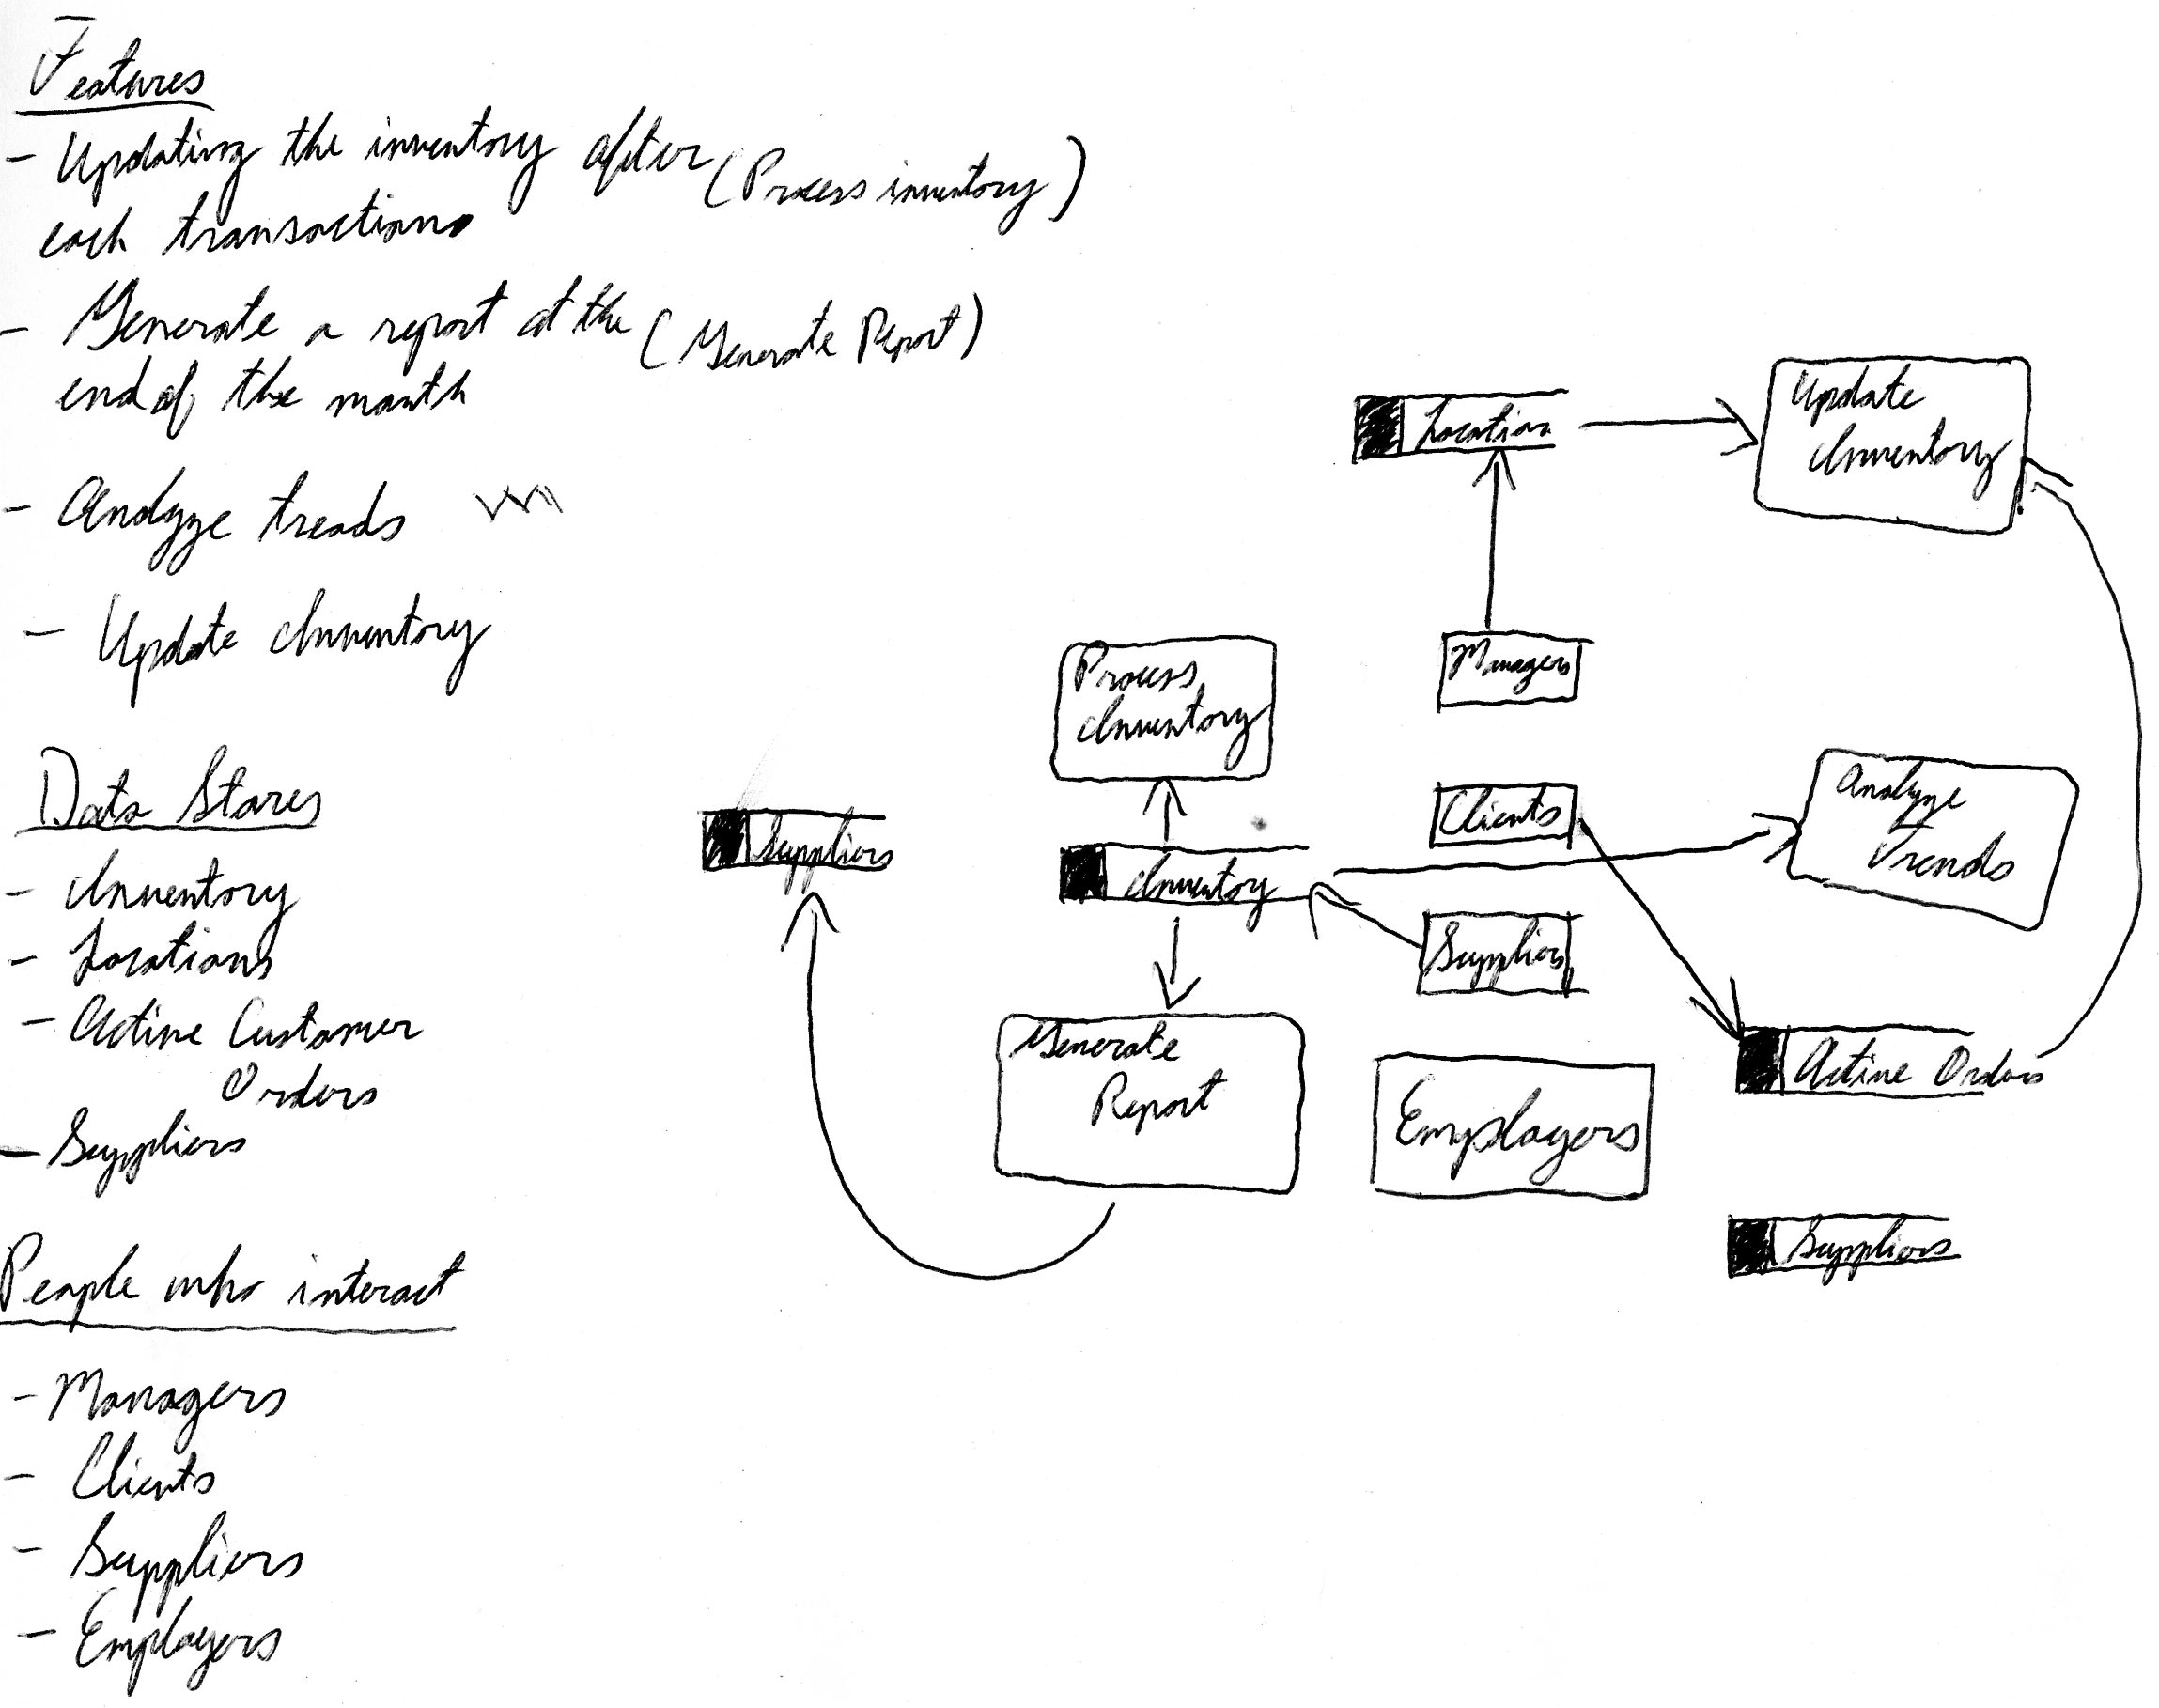 Features
- Updating the inventory after (Process inventory)
each transactions
- Generate a report at the (Generate Report)
end of the month
- Analyze trends
- Update Inventory
Data Stores
- Inventory
- Locations
- Active Customer
Orders
- Suppliers
People who interact
- Managers
- Clients
- Suppliers
- Employers
Location
Update
Inventory
Managers
Process
Inventory
Clients
Analyze
Trends
Suppliers
Inventory
Suppliers
Generate
Report
Employers
Active Orders
Suppliers